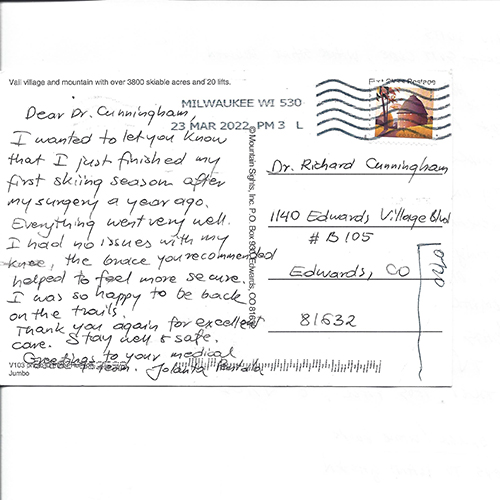 Vail village and mountain with over 3800 skiable acres and 20 lifts.
MILWAUKEE WI 530
23 MAR 2022 PM 3 L
Dear Dr. Cunningham,
I wanted to let you know
that I just finished my
first skiing season after
my surgery a year ago.
Everything went very well.
I had no issues with my
knee, the brace you recommended
helped to feel more secure.
I was so happy to be back
on the trails.
Thank you again for excellent
care. Stay well & safe.
Greetings to your medical
team. Jolanta
V103
Jumbo
© Mountain Sights, Inc. P.O. Box 930 Edwards, CO 81632
Dr. Richard Cunningham
1140 Edwards Village Blvd
# B105
Edwards, CO
81632